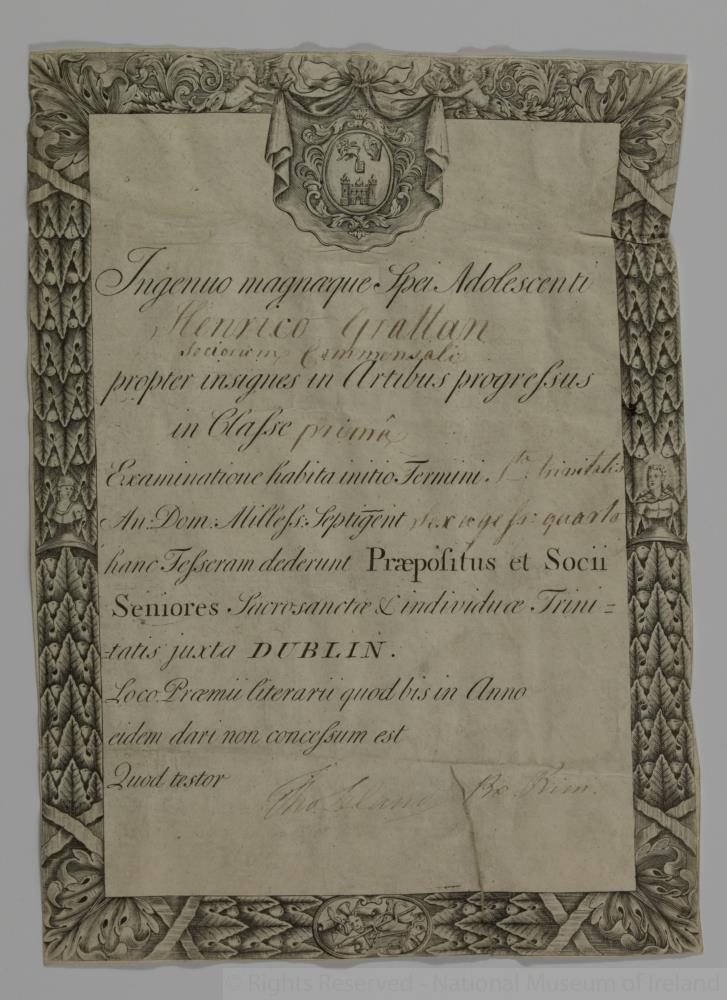 Ingenuo magnæque Spei Adolescenti
Henrico Grattan
Sociorum Commensali
propter insignes in Artibus progreſsus
in Claſse primâ
Examinatione habita initio Termini Stæ. trinitatis
An: Dom: Milleſs: Septigent sexageſs: quarto
hanc Teſseram dederunt Præpoſitus et Socii
Seniores Sacrosanctæ & individuæ Trini=
tatis juxta DUBLIN.
Loco Præmii literarii quod bis in Anno
eidem dari non conceſsum est
Quod testor
Tho Leland
© Rights Reserved - National Museum of Ireland